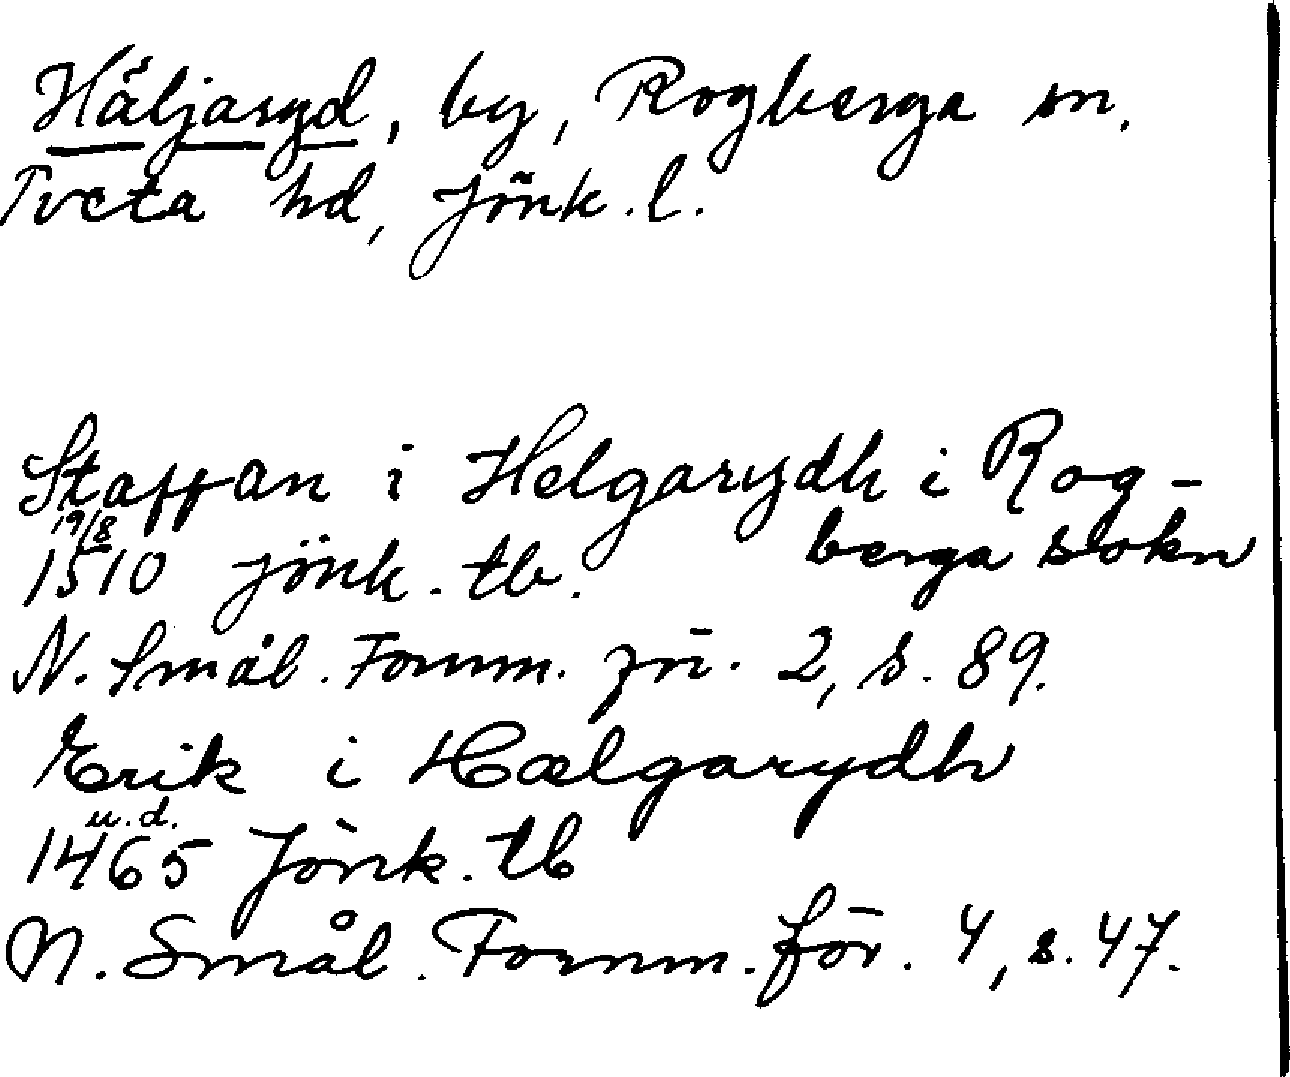 Häljaryd, by, Rogberga sn.
Tveta hd, Jönk. l.
Staffan i Helgarydh i Rog-
berga sokn
19/8
1510 Jönk. tb.
N. Smål. Fornm. för. 2, s. 89.
Erik i Hælgarydh
u.d.
1465 Jönk. tb
N. Smål. Fornm. för. 4, s. 47.